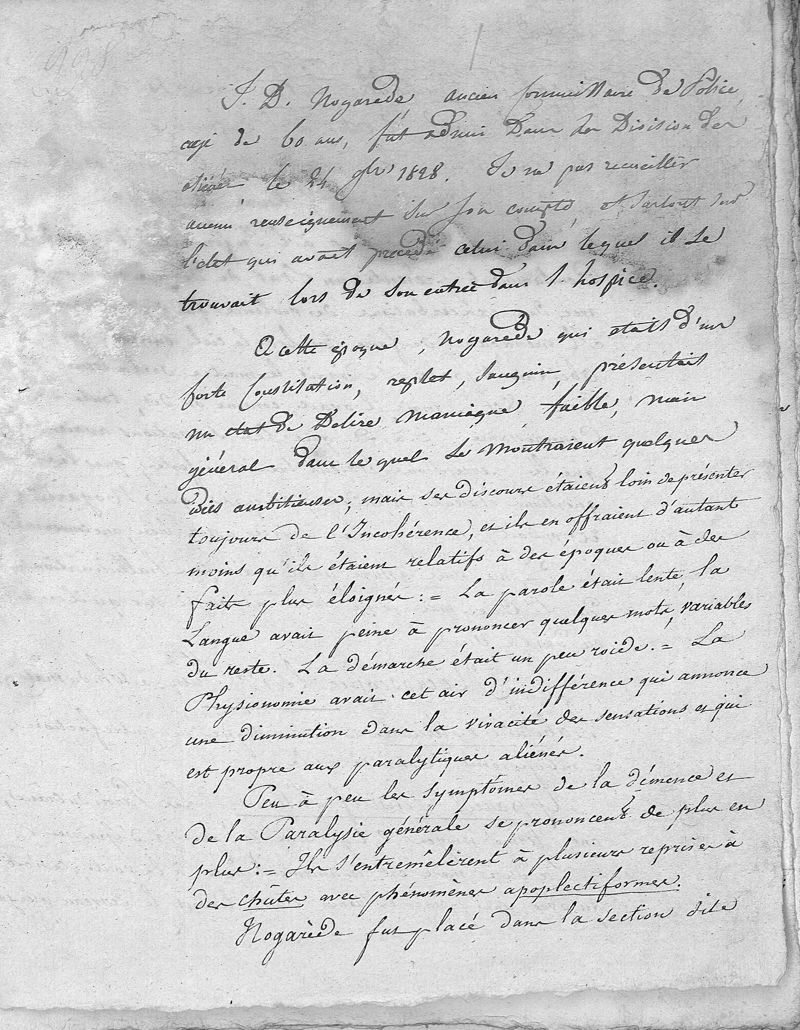 J. D. Nogarède, ancien Commissaire de Police,
agé de 60 ans, fut admis dans la Division des
aliénés le 24 9bre 1828. Je n'ai pas recueillir
aucun renseignement sur son compte, et surtout sur
l'état qui avait précédé celui dans lequel il se
trouvait lors de son entrée dans l'hospice.
A cette époque, Nogarède qui était d'une
forte Constitution, replet, sanguin, présentait
un état de Délire maniaque faible, mais
général dans lequel se montraient quelques
idées ambitieuses, mais ses discours étaient loin de présenter
toujours de l'Incohérence, et ils en offraient d'autant
moins qu'ils étaient relatifs à des époques ou à des
faits plus éloignés : = La parole était lente, la
Langue avait peine à prononcer quelques mots, variables
du reste. La démarche était un peu roide. = La
Physionomie avait cet air d'indifférence qui annonce
une diminution dans la vivacité des sensations et qui
est propre aux paralytiques aliénés.
Peu à peu les symptômes de la démence et
de la Paralysie générale se prononcent de plus en
plus : = Ils s'entremêlèrent à plusieurs reprises à
des chûtes avec phénomènes apoplectiformes.
Nogarède fut placé dans la section dite